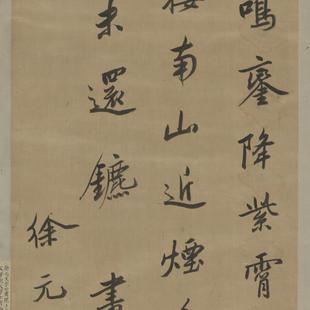 鳴鑾降紫霄
接南山近煙
未還鑣 書
徐元